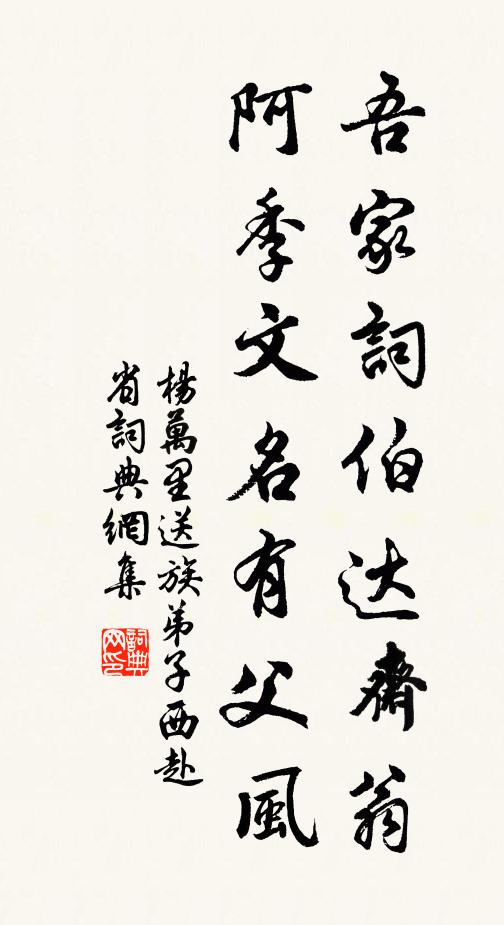 吾家詞伯达齋翁
阿季文名有父風
楊萬里送族弟子西赴
省詞典網集
詞典网印